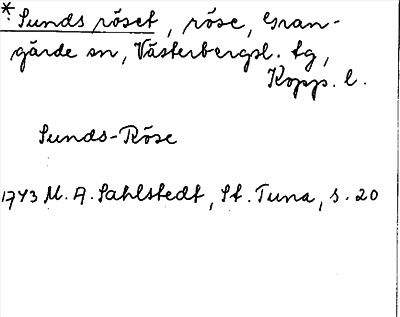 * Sunds röset, röse, Gran-
gärde sn, Västerbergsl. tg,
Kopp. l.
Sunds-Röse
1743 M. A. Sahlstedt, St. Tuna, s. 20